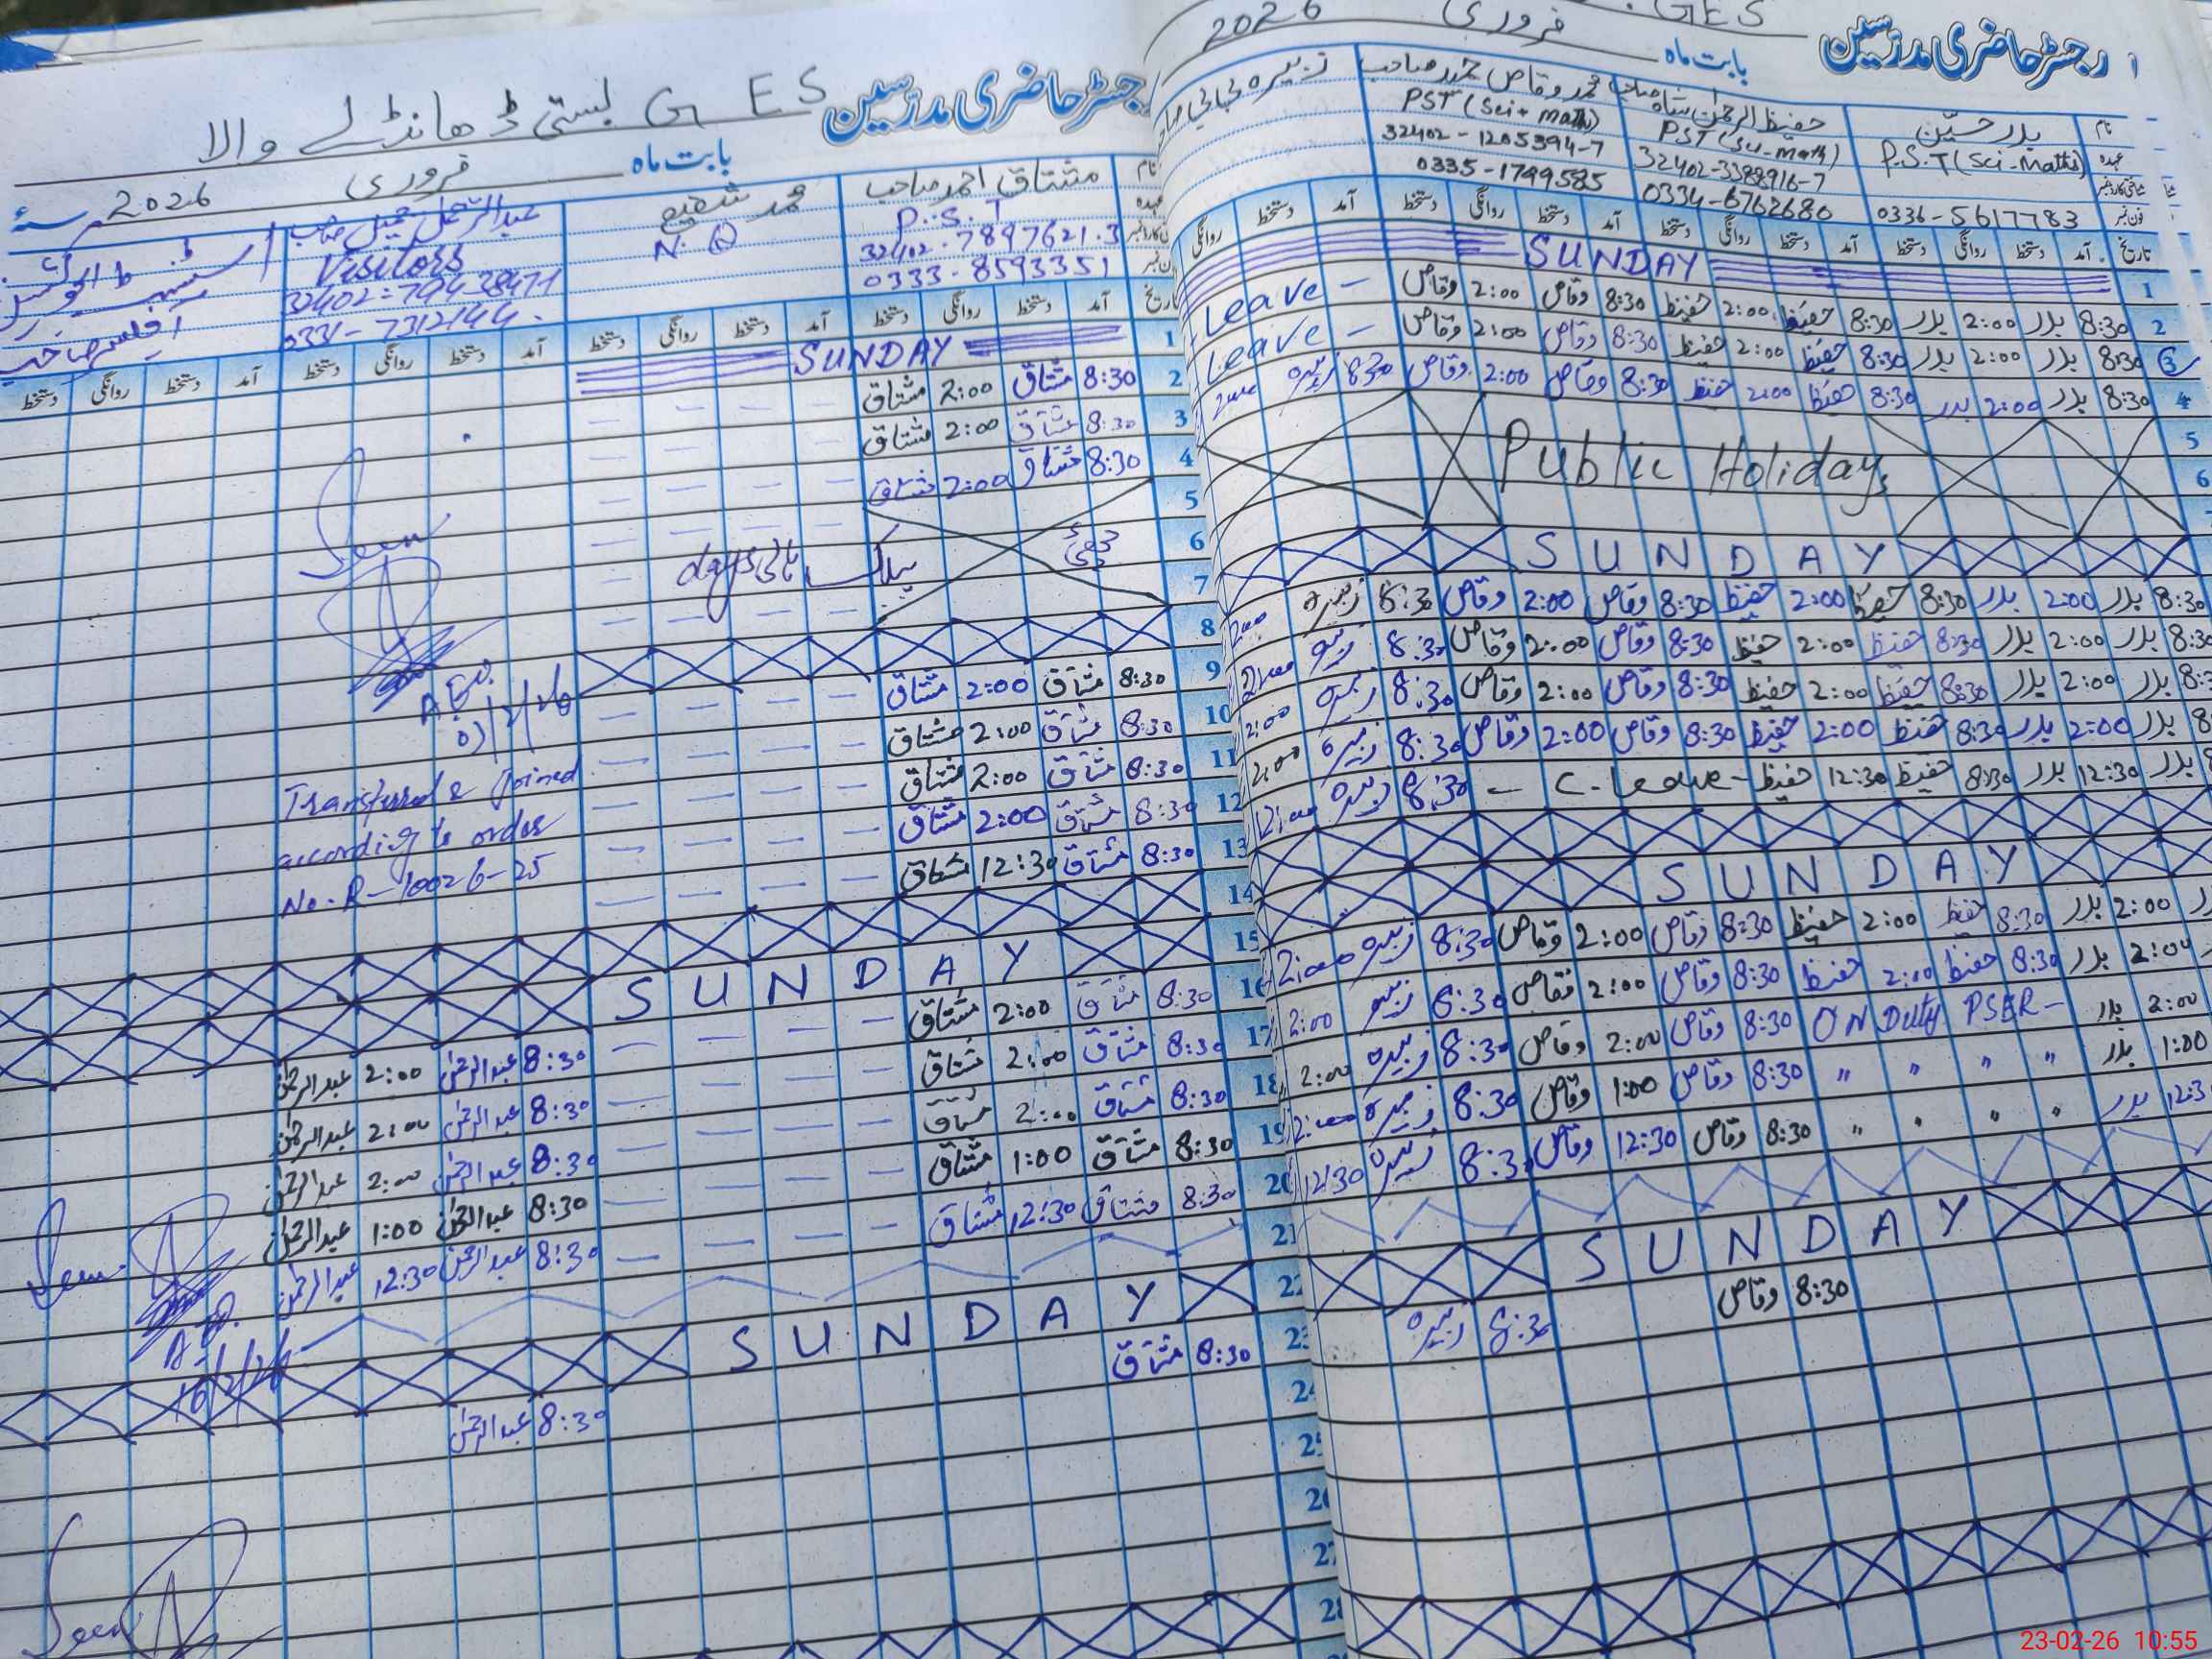 رجسٹر حاضری مدرسین
GES
بابت ماہ فروری 2026
نام بدر حسین
حفیظ الرحمٰن شاہ صاحب
محمد وقاص حمید صاحب
عہدہ P.S.T (Sci-Maths)
PST (Sci-Math)
PST (Sci + Math)
32402-3388916-7
32402-1205394-7
فون نمبر 0336-5617783
0334-6762680
0335-1799585
تاریخ آمد دستخط روانگی دستخط آمد دستخط روانگی دستخط آمد دستخط روانگی دستخط آمد دستخط روانگی
1 SUNDAY
2 8:30 بدر 2:00 بدر 8:30 حفیظ 2:00 حفیظ 8:30 وقاص 2:00 وقاص Leave -
3 8:30 بدر 2:00 بدر 8:30 حفیظ 2:00 حفیظ 8:30 وقاص 2:00 وقاص Leave -
4 8:30 بدر 2:00 بدر 8:30 حفیظ 2:00 حفیظ 8:30 وقاص 2:00 وقاص 8:30 زبیرہ
5
6 Public Holidays
SUNDAY
8:30 بدر 2:00 بدر 8:30 حفیظ 2:00 حفیظ 8:30 وقاص 2:00 وقاص 8:30 زبیرہ 2:00
8:30 بدر 2:00 بدر 8:30 حفیظ 2:00 حفیظ 8:30 وقاص 2:00 وقاص 8:30 زبیرہ 2:00
8:3 بدر 2:00 بدر 8:30 حفیظ 2:00 حفیظ 8:30 وقاص 2:00 وقاص 8:30 زبیرہ 2:00
8 بدر 2:00 بدر 8:30 حفیظ 2:00 حفیظ 8:30 وقاص 2:00 وقاص 8:30 زبیرہ 2:00
8 بدر 12:30 بدر 8:30 حفیظ 12:30 حفیظ - C. Leave - 8:30 زبیرہ 12:00
SUNDAY
2:00 بدر 8:30 حفیظ 2:00 حفیظ 8:30 وقاص 2:00 وقاص 8:30 زبیرہ 2:00
2:00 بدر 8:30 حفیظ 2:00 حفیظ 8:30 وقاص 2:00 وقاص 8:30 زبیرہ 2:00
2:00 بدر ON Duty PSER - 8:30 وقاص 2:00 وقاص 8:30 زبیرہ 2:00
1:00 بدر " " " " 8:30 وقاص 1:00 وقاص 8:30 زبیرہ 2:00
12:3 بدر " " " " 8:30 وقاص 12:30 وقاص 8:30 زبیرہ 12:30
SUNDAY
8:30 وقاص 8:30 زبیرہ
رجسٹر حاضری مدرسین
GES بستی ڈھانڈلے والا
بابت ماہ فروری 2026 سنہء
نام مشتاق احمد صاحب
محمد شفیع
عبدالرحمٰن جمیل صاحب
عہدہ P.S.T
N.Q
Visitors
32402-7897621-3
32402-7943847-1
0333-8593351
0331-7312144
تاریخ آمد دستخط روانگی دستخط آمد دستخط روانگی دستخط آمد دستخط روانگی دستخط آمد دستخط روانگی دستخط
1 SUNDAY
2 8:30 مشتاق 2:00 مشتاق
3 8:30 مشتاق 2:00 مشتاق
4 8:30 مشتاق 2:00 مشتاق
5
6 چھٹی پبلک ہالی days
Seen
7
8
9 8:30 مشتاق 2:00 مشتاق
10 8:30 مشتاق 2:00 مشتاق
11 8:30 مشتاق 2:00 مشتاق
12 8:30 مشتاق 2:00 مشتاق
13 8:30 مشتاق 12:30 مشتاق
Transferred & Joined
according to order
No. R-10026-25
14
15 SUNDAY
16 8:30 مشتاق 2:00 مشتاق 8:30 عبدالرحمٰن 2:00 عبدالرحمٰن
17 8:30 مشتاق 2:00 مشتاق 8:30 عبدالرحمٰن 2:00 عبدالرحمٰن
18 8:30 مشتاق 2:00 مشتاق 8:30 عبدالرحمٰن 2:00 عبدالرحمٰن
19 8:30 مشتاق 1:00 مشتاق 8:30 عبدالرحمٰن 1:00 عبدالرحمٰن
20 8:30 مشتاق 12:30 مشتاق 8:30 عبدالرحمٰن 12:30 عبدالرحمٰن
Seen
16/2/26
21
22 SUNDAY
23 8:30 مشتاق 8:30 عبدالرحمٰن
24
25
26
27
28
Seen
23-02-26 10:55